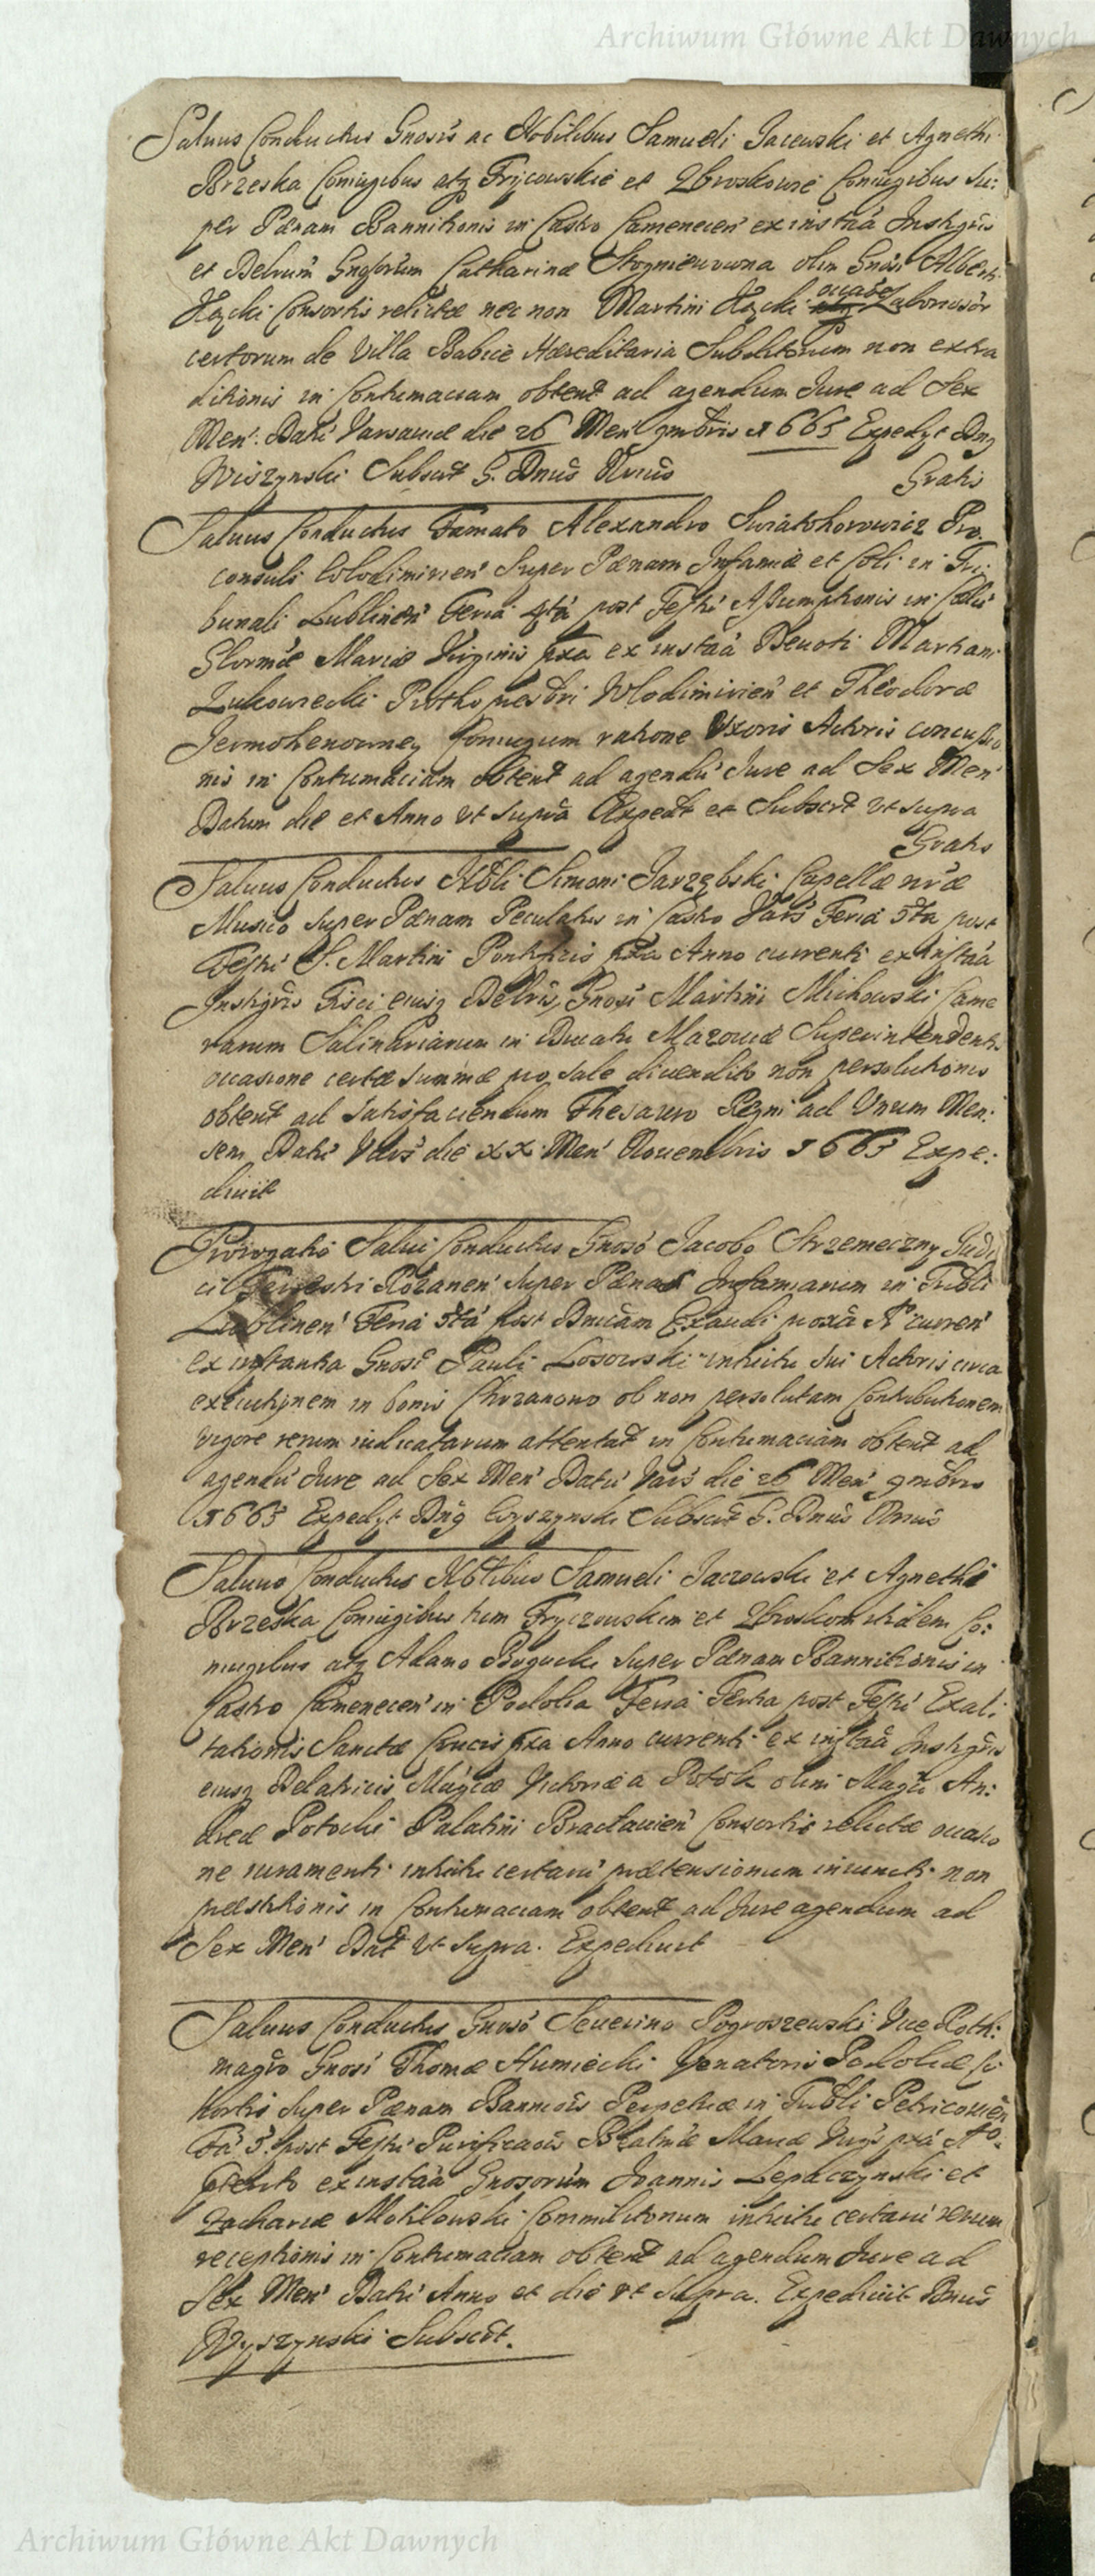 Archiwum Główne Akt Dawnych
Saluus Conductus Gnosis ac Nobilibus Samueli Jacewski et Agnethi
Brzeska Coniugibus atq Frycowskie et Zbroskowie Coniugibus Su:
per Pænam Bannitionis in Castro Camenecen' ex instââ Instigris
et Delrum Catharinæ olim Gnosi Alberti
Consortis relictæ nec non Martini Laboriosor
certorum de Villa Babice Hæreditaria Subditorum non extra
ditionis in Contumaciam obtent ad agendum Jure ad Sex
Men'. Dati Varsaviæ die 26 Men' 9mbris 1665 Expedyt Dnq
Wiszynski Subscrt S. Dnus Gratis
Saluus Conductus Famato Alexandro Swiatohorowicz Pro
consuli Wlodimirien' Super Pænam Infamiæ et Coli in Tri:
bunali Lublinen' Feria 4tâ post Festũ Assumptionis in Cœlũ
Glormæ Mariæ Virginis pxa ex instââ Deuoti Martiani
Zukowiecki Wlodimirien' et Theodoræ
Coniugum ratione Uxoris Actoris concussio
nis in Contumaciam obtent ad agendũ Jure ad Sex Men'
Datum die et Anno ut supra Expedt et Subscrt ut supra
Gratis
Saluus Conductus Nbli Simoni Jarzębski Capellæ nræ
Musico super Pænam Peculatus in Castro Vars' Feria 5ta post
Festũ S. Martini Pontificis pxa Anno currenti ex instââ
Instigris Fisci eiusq Delris, Gnosi Martini Michowski Came
rarum Salinariarum in Ducatu Mazouiæ Superintendentis
occasione certæ summæ pro sale diuendito non persolutionis
obtent ad satisfaciendum Thesauro Regni ad Unum Men:
sem Datũ Vars' die xx Men' Nouembris 1665 Expe:
diuit
Prorogatio Salui Conductus Gnoso Jacobo Strzemeczny Judi
ci Terrestri Rożanen' super Pænas Infamiarum in Tribli
Lublinen' Feria 5tâ post Dnicam Exaudi proxâ Aº curren'
ex instantia Gnosi Pauli Losowski intuitu sui Actoris circa
executionem in bonis Chrzanowo ob non persolutam Contributionem
vigore rerum iudicatarum attentat in Contumaciam obtent ad
agendũ Jure ad Sex Men' Datũ Vars' die 26 Men' 9mbris
1665 Expedyt Dnq Wyszynski Subscrt S. Dnus
Saluus Conductus Nbilibus Samueli Jaczewski et Agnethi
Brzeska Coniugibus tum Fryczowskim et Zbroskom itidem Co:
niugibus atq Adamo Bogucki super Pænam Bannitionis in
Castro Camenecen' in Podolia Feria Tertia post Festũ Exal:
tationis Sanctæ Crucis pxa Anno currenti ex instââ Instigris
eiusq Delatricis Magcæ Victoriæ a Potok olim Magci An:
dreæ Potocki Palatini Braclauien' Consortis relictæ occasio
ne iuramenti intuitu certarũ prætensionum iniuncti non
præstitionis in Contumaciam obtent ad Jure agendum ad
Sex Men' Dat Ut supra. Expediuit
Saluus Conductus Gnoso Seuerino Pogroszewski Vice Roth:
magro Gnosi Thomæ Humiecki Venatoris Podoliæ Co
hortis super Pænam Banniois Perpetuæ in Tribli Petricouien
Fa 5. post Festũ Purificaois Beatmæ Mariæ Virgis pxâ Aº
pterito ex instââ Gnosorum Joannis Lepaczynski et
Zachariæ Motilowski Commilitonum intuitu certarũ rerum
receptionis in Contumaciam obtent ad agendum Jure ad
Sex Men' Dati Anno et die ut supra. Expediuit Dnus
Wyszynski Subscrt.
Archiwum Główne Akt Dawnych